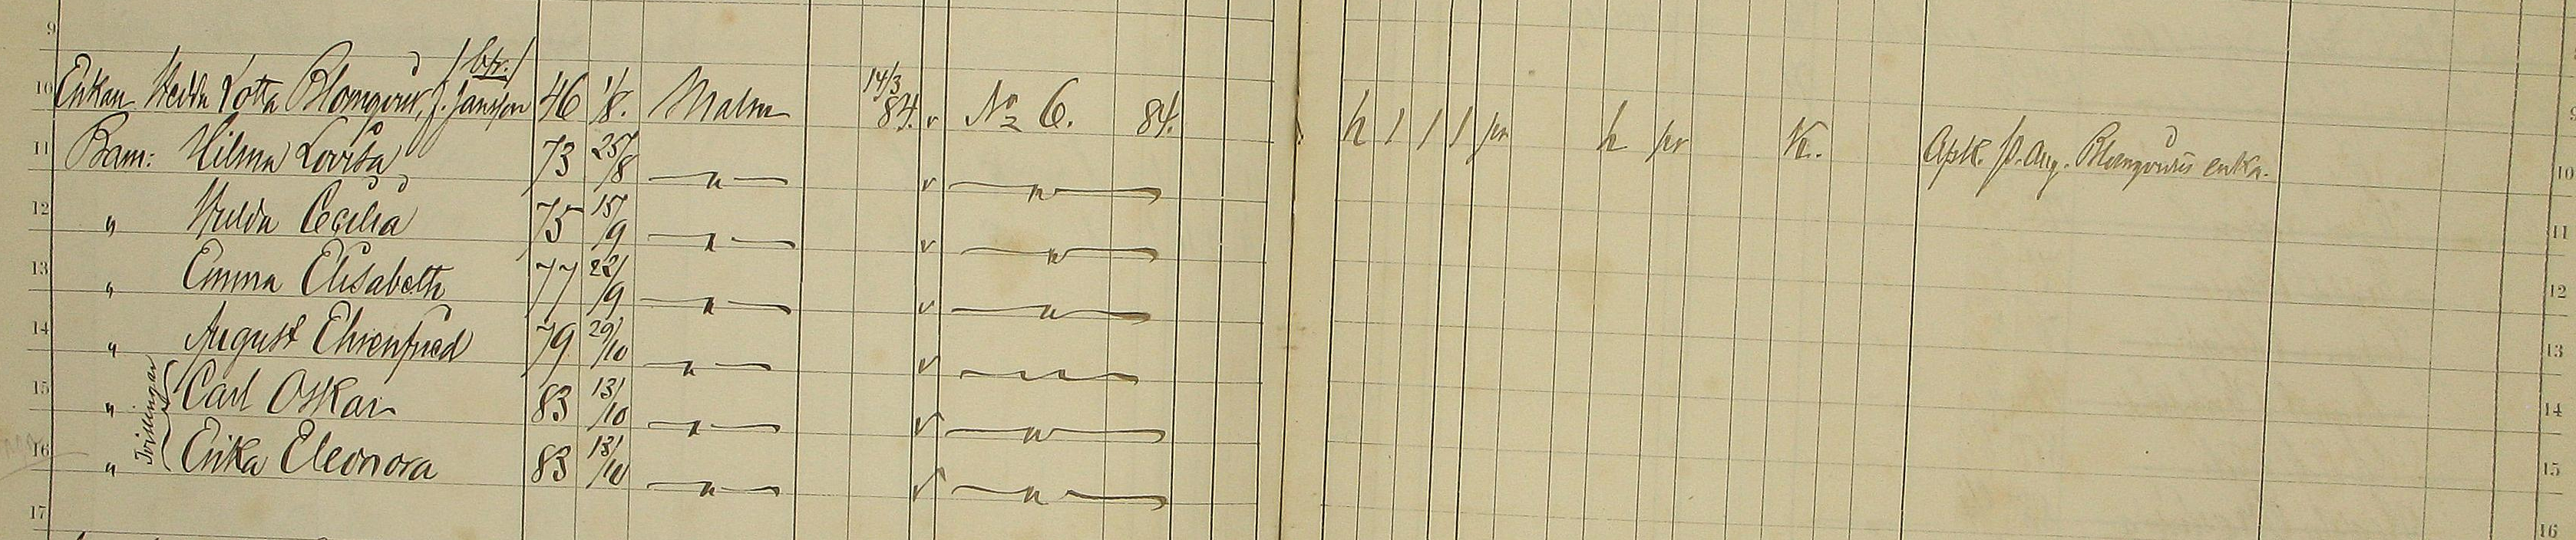 9
/bfr./
10 Enkan Hedda Lotta Blomqvist, f. Jansson 46 1/8. Malm 14/3 84. v No 6. 84. h / / / pr h pr K. Apk. P. Aug. Blomqvists enka. 9
11 Barn: Hilma Lovisa 73 25/8 — " — v — " — 10
12 " Hulda Cecilia 75 15/9 — " — v — " — 11
13 " Emma Elisabeth 77 22/9 — " — v — " — 12
14 " August Ehrenfried 79 29/10 — " — v — " — 13
15 " Tvillingar Carl Oskar 83 13/10 — " — v — " — 14
16 " Erika Eleonora 83 13/10 — " — v — " — 15
17 16